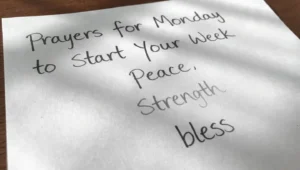 Prayers for Monday
to Start Your Week
Peace.
Strength
bless